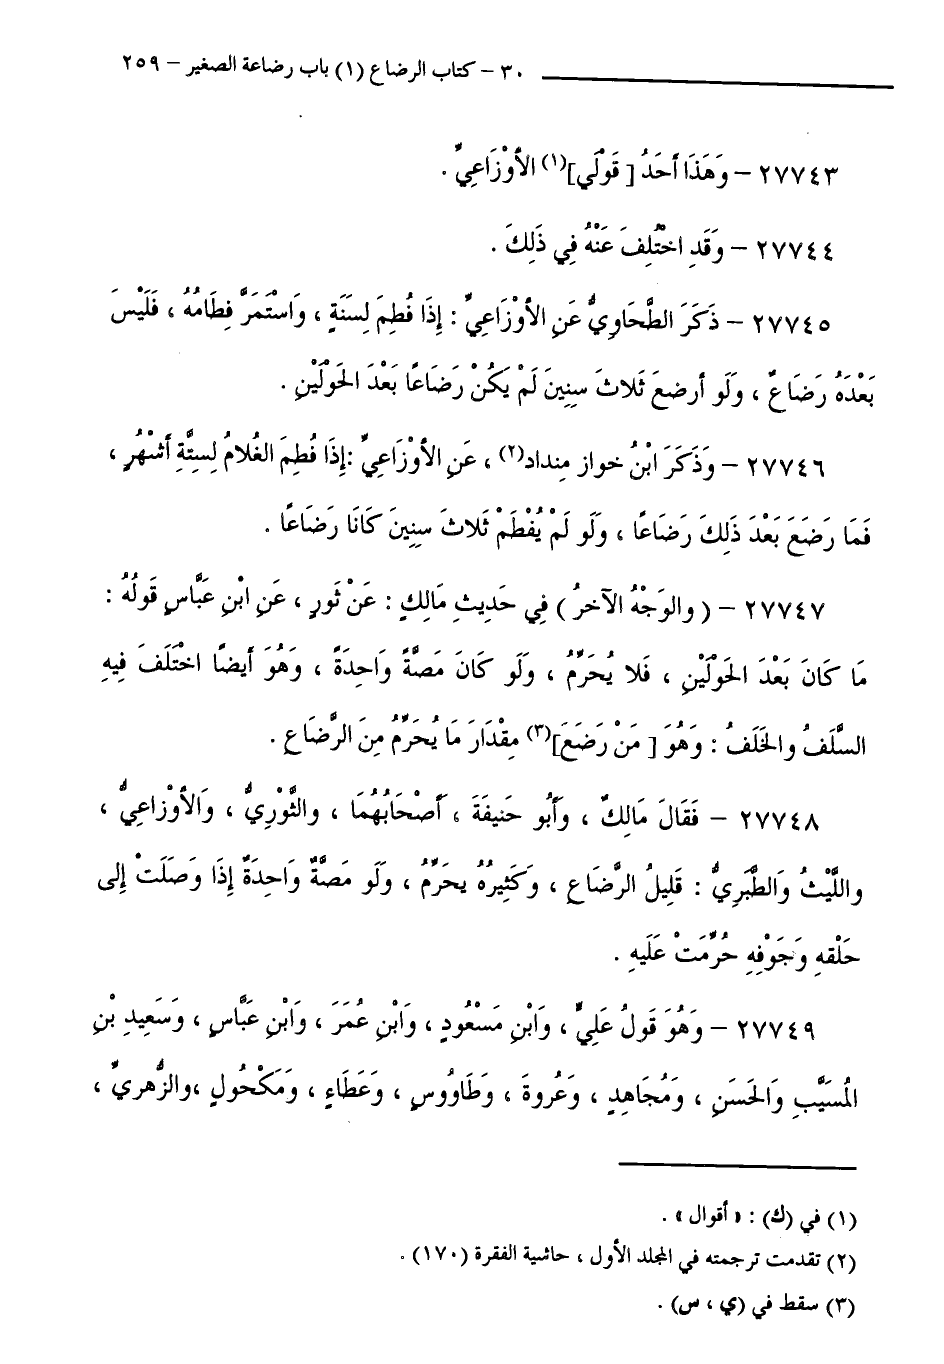 ٣٠ – كتاب الرضاع (١) باب رضاعة الصغير – ٢٥٩
٢٧٧٤٣ – وَهَذَا أَحَدُ [ قَوْلَي](١) الأَوْزَاعِيِّ .
٢٧٧٤٤ – وَقَدِ اخْتُلِفَ عَنْهُ فِي ذَلِكَ .
٢٧٧٤٥ – ذَكَرَ الطَّحَاوِيُّ عَنِ الأَوْزَاعِيِّ : إِذَا فُطِمَ لِسَنَةٍ ، وَاسْتَمَرَّ فِطَامُهُ ، فَلَيْسَ
بَعْدَهُ رَضَاعٌ ، وَلَو أرضعَ ثَلاثَ سِنِينَ لَمْ يَكُنْ رَضَاعًا بَعْدَ الحَوْلَيْنِ .
٢٧٧٤٦ – وَذَكَرَ ابْنُ خواز منداد(٢) ، عَنِ الأَوْزَاعِيِّ :إِذَا فُطِمَ الغُلامُ لِسِتَّةِ أَشْهُرٍ ،
فَمَا رَضَعَ بَعْدَ ذَلِكَ رَضَاعًا ، وَلَو لَمْ يُفْطَمْ ثَلاثَ سِنِينَ كَانَا رَضَاعًا .
٢٧٧٤٧ – ( والوَجْهُ الآخرُ ) فِي حَدِيثِ مَالِكٍ : عَنْ ثَورٍ ، عَنِ ابْنِ عَبَّاسٍ قَولُهُ :
مَا كَانَ بَعْدَ الحَوْلَيْنِ ، فَلا يُحَرِّمُ ، وَلَو كَانَ مَصَّةً وَاحِدَةً ، وَهُوَ أَيضًا اخْتَلَفَ فِيهِ
السَّلَفُ والخَلَفُ : وَهُوَ [ مَنْ رَضَعَ](٣) مِقْدَارَ مَا يُحَرِّمُ مِنَ الرَّضَاعِ .
٢٧٧٤٨ – فَقَالَ مَالِكٌ ، وَأَبُو حَنِيفَةَ ، أَصْحَابُهُمَا ، والثَّوْرِيُّ ، وَالأَوْزَاعِيُّ ،
واللَّيْثُ وَالطَّبَرِيُّ : قَلِيلُ الرَّضَاعِ ، وَكَثِيرُهُ يحَرِّمُ ، وَلَو مَصَّةٌ وَاحِدَةٌ إِذَا وَصَلَتْ إِلى
حَلْقهِ وَجَوْفِهِ حُرِّمَتْ عَلَيهِ .
٢٧٧٤٩ – وَهُوَ قَولُ عَلِيٍّ ، وَابْنِ مَسْعُودٍ ، وَابْنِ عُمَرَ ، وَابْنِ عَبَّاسٍ ، وَسَعِيدِ بْنِ
المُسَيَّبِ وَالحَسَنِ ، وَمُجَاهِدٍ ، وَعُروةَ ، وَطَاوُوسٍ ، وَعَطَاءٍ ، وَمَكْحُولٍ ،والزُّهريِّ ،
(١) في (ك) : « أقوال » .
(٢) تقدمت ترجمته في المجلد الأول ، حاشية الفقرة (١٧٠) .
(٣) سقط في (ي ، س) .